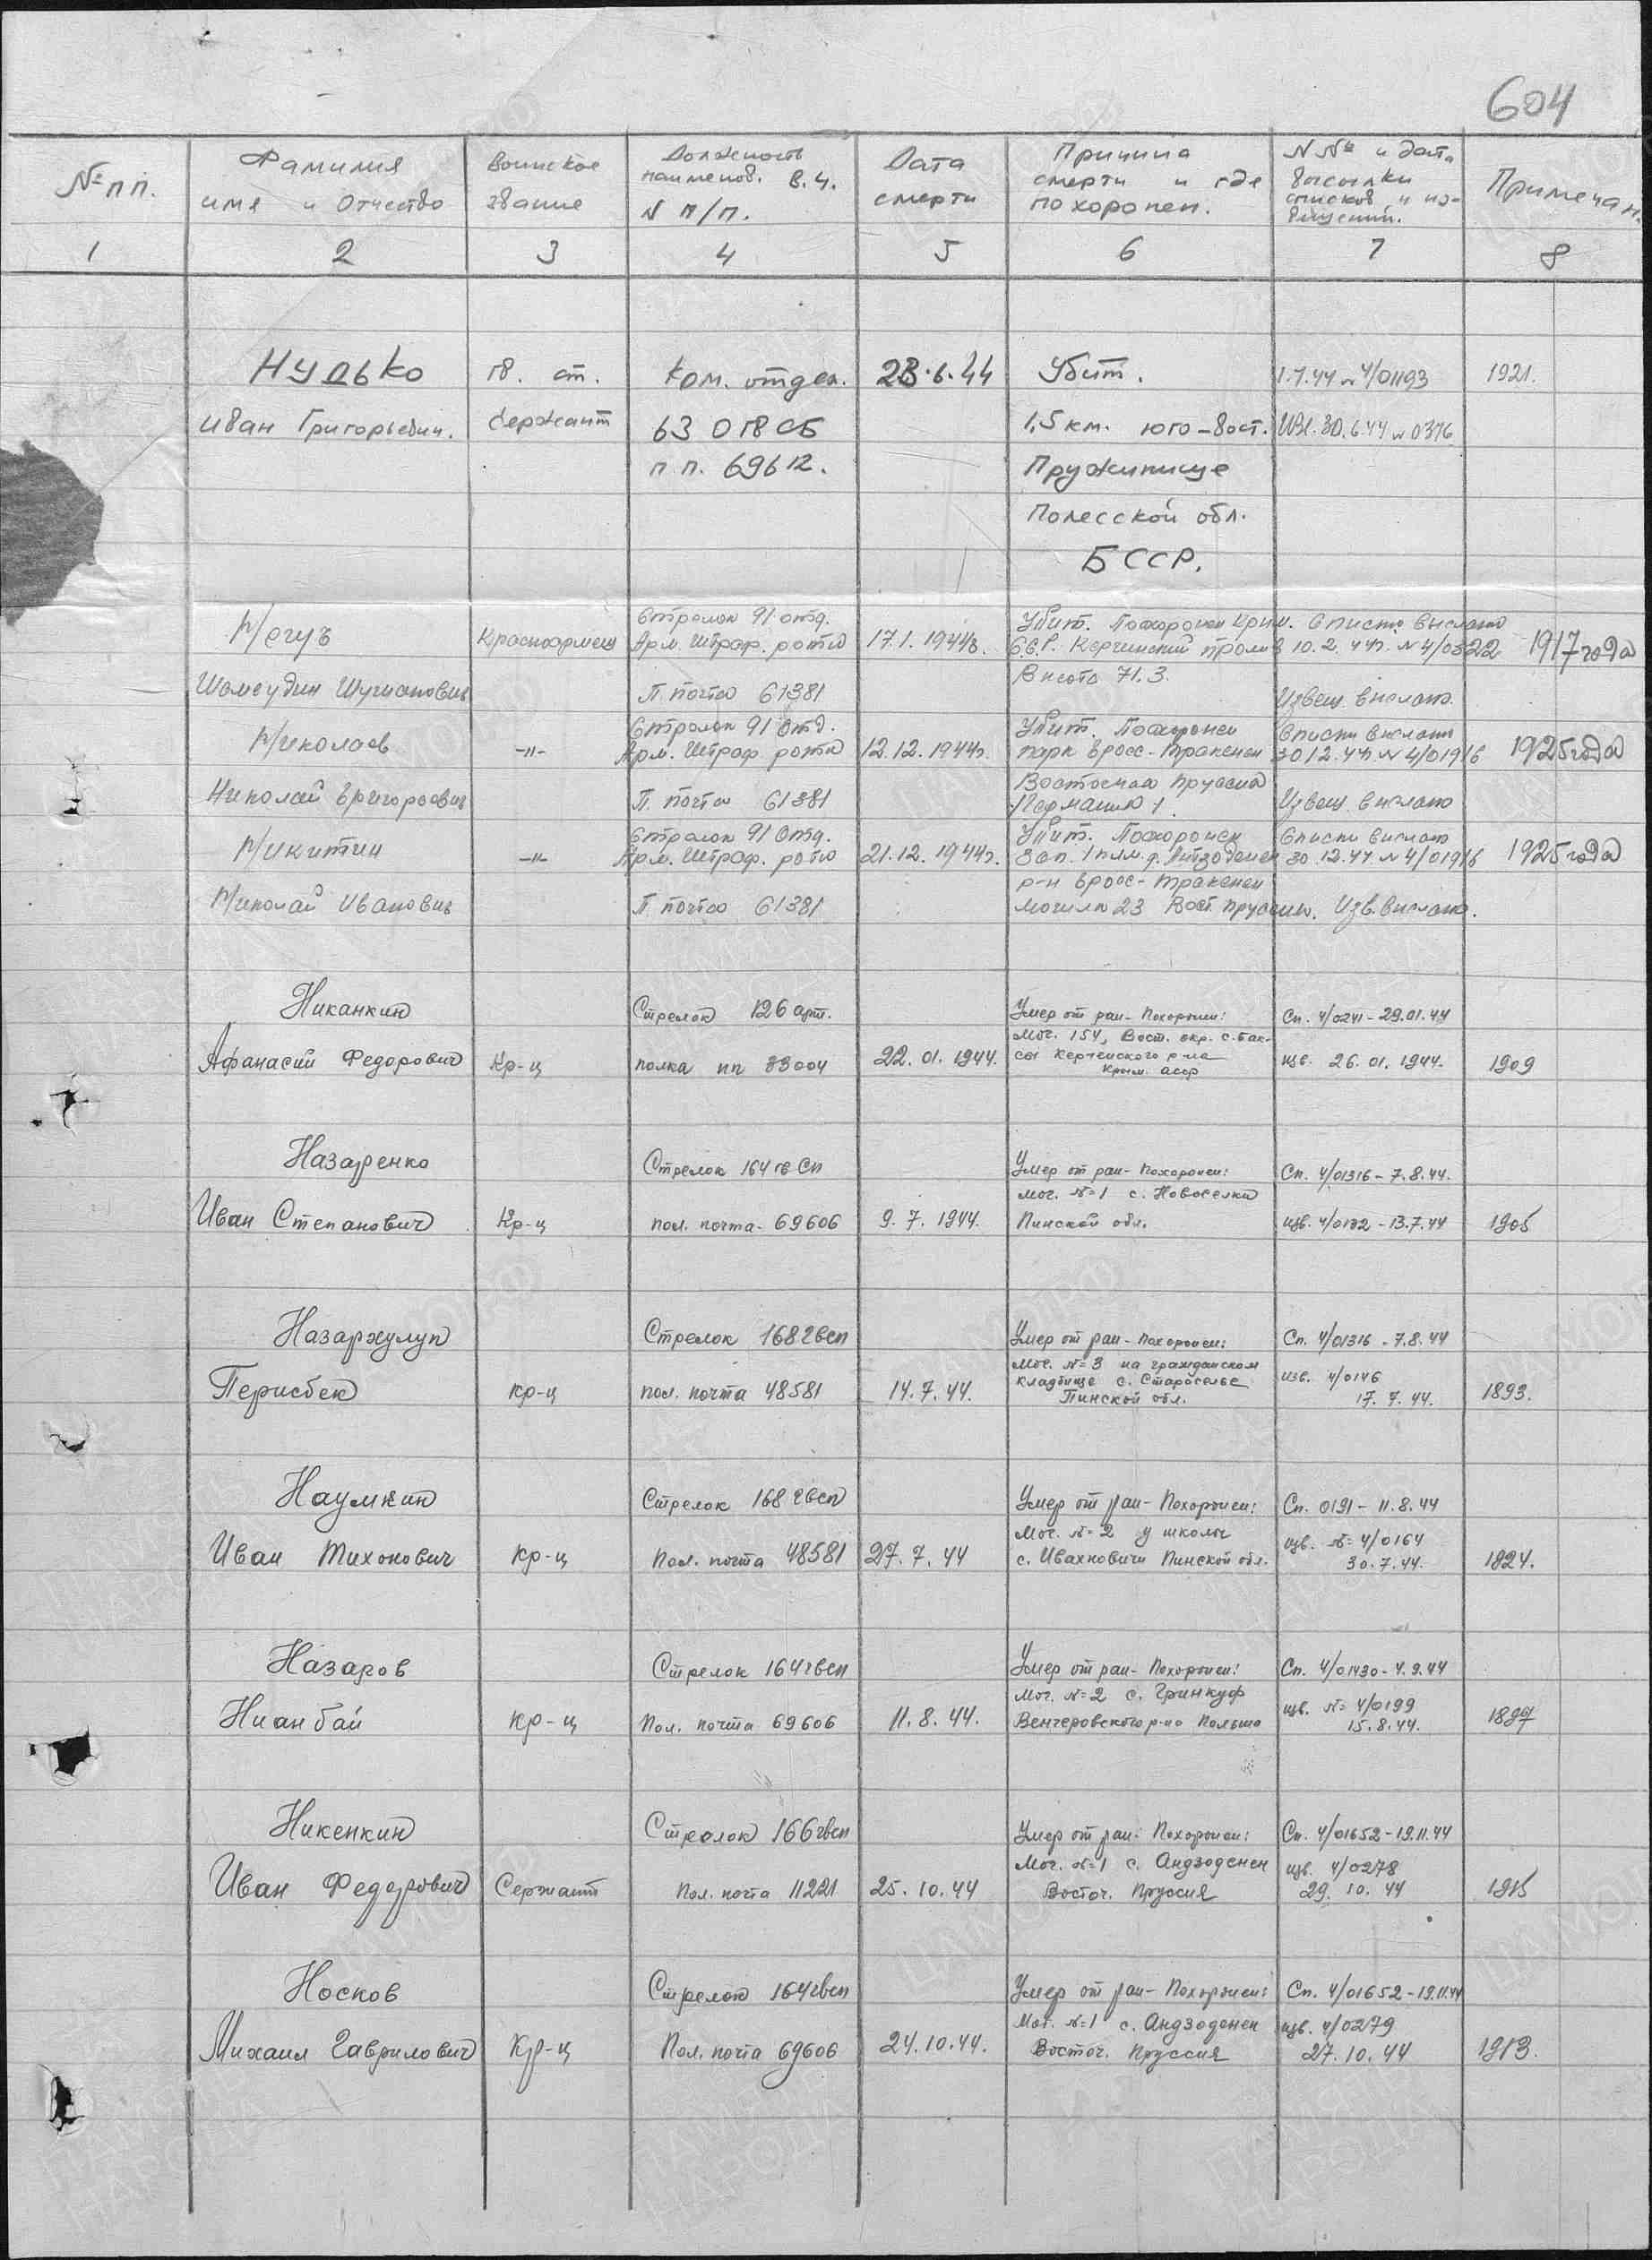 604
№ п п.
Фамилия имя и Отчество
Воинское звание
Должность наименов. в.ч. N п/п.
Дата смерти
Причина смерти и где похоронен.
N №ъ и дата высылки списков и из-вещений.
Примечан.
1 2 3 4 5 6 7 8
Нудько гв. ст. Ком. отдел. 23.6.44 Убит. 1.7.44 N 4/01193 1921.
Иван Григорьевич. Сержант 63 ОГВСБ 1,5 км. юго-вост. Изв. 30.6.44 N 0376
п п. 69612. Пружинище
Полесской обл.
БССР.
Стрелок 91 отд. Убит. Похоронен Крым. Списки высланы
Негуч Красноармеец Арм. Штраф. роты 17.1.1944г. С.С.Р. Керченский пролив 10.2.44г. N 4/0322 1917 года
Высота 71.3.
Шамсудин П. почта 61381 Извещ. выслано.
Стрелок 91 отд. Убит. Похоронен Списки высланы
Николаев -"- Арм. Штраф. роты 12.12.1944г. парк Гросс-Тракенен 30.12.44г. N 4/01916 1925 года
Восточная Пруссия
Николай Григорьевич П. почта 61381 /Германия/. Извещ. выслано
Стрелок 91 отд. Убит. Похоронен Списки высланы
Никитин -"- Арм. Штраф. роты 21.12.1944г. Зап. 1 клм. ф. 30.12.44 N 4/01916 1925 года
р-н Гросс-Тракенен
Николай Иванович П. почта 61381 могила 23 Вост. Пруссия. Изв. выслано.
Никанкин Стрелок 126 арт. Умер от ран- Похоронен: Сп. 4/0241-29.01.44
Мог. 154, Вост. окр. с. Бак-
Афанасий Федорович Кр-ц полка пп 33004 22.01.1944. сы Керченского р-на изв. 26.01.1944. 1909
Крым. асср
Назаренко Стрелок 164 гв Сп Умер от ран- Похоронен: Сп. 4/01316-7.8.44.
Мог. №=1 с. Новоселки
Иван Степанович Кр-ц пол. почта-69606 9.7.1944. Пинской обл. изв. 4/0132-13.7.44 1905
Назаркулуп Стрелок 168гвсп Умер от ран- Похоронен: Сп. 4/01316-7.8.44
Мог. №=3 на гражданском
Перисбек кр-ц пол. почта 48581 14.7.44. кладбище с. Староселье изв. 4/0146 1893.
Пинской обл. 17.7.44.
Наумкин Стрелок 168гвсп Умер от ран- Похоронен: Сп. 0191-11.8.44
Мог. №=2 у школы изв. №=4/0164
Иван Тихонович Кр-ц Пол. почта 48581 27.7.44 с. Ивахновичи Пинской обл. 30.7.44. 1924.
Назаров Стрелок 164гвсп Умер от ран- Похоронен: Сп. 4/01430-4.9.44
Мог. №=2 с. Гринкуф изв. №=4/0199
Нианбай Кр-ц Пол. почта 69606 11.8.44. Венгеровского р-на Польша 15.8.44.
Никенкин Стрелок 166гвсп Умер от ран- Похоронен: Сп. 4/01652-19.11.44
Мог. №=1 с. Андзоденен изв. 4/0278
Иван Федорович Сержант Пол. почта 11221 25.10.44 Восточ. Пруссия 29.10.44 1915
Носков Стрелок 164гвсп Умер от ран- Похоронен: Сп. 4/01652-19.11.44
Мог. №=1 с. Андзоденен изв. 4/0279
Михаил Гаврилович Кр-ц Пол. почта 69606 24.10.44. Восточ. Пруссия 27.10.44 1913.